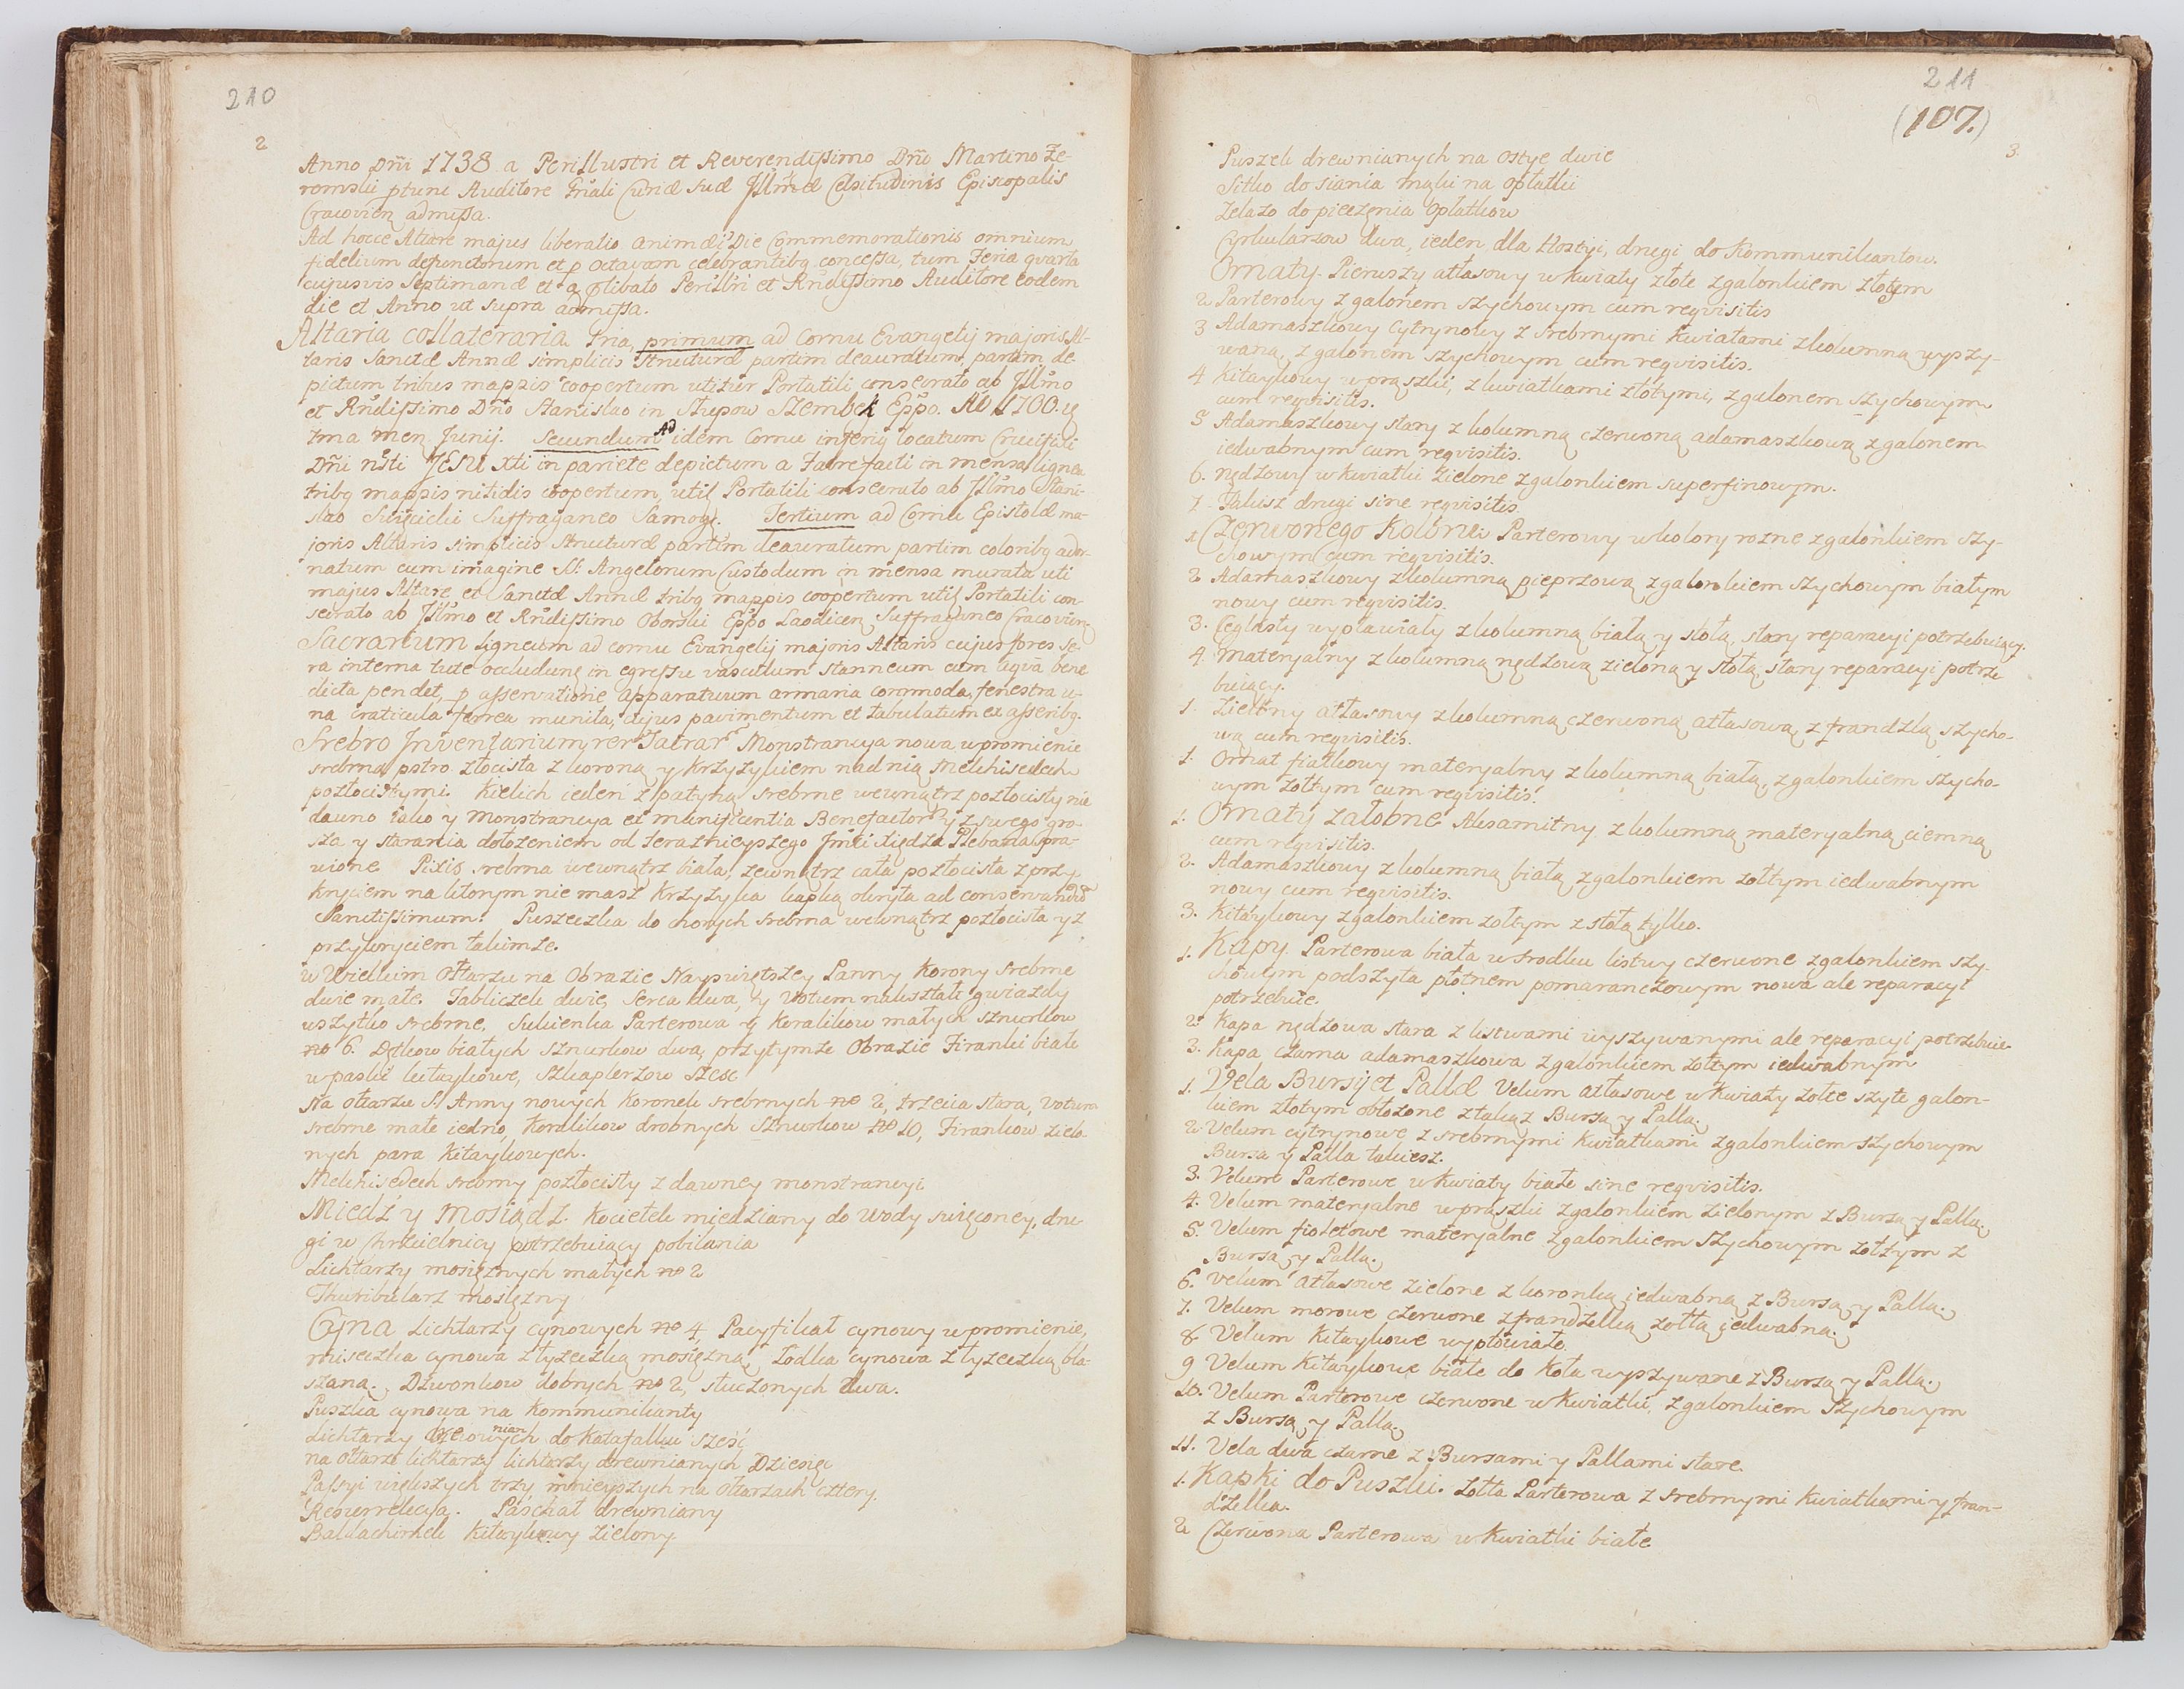 210
2
Anno Dñi 1738 a Perillustri et Reverendissimo Dño Martino Że-
romski ptunc Auditore Gñali Curiæ suæ Illmæ Celsitudinis Episcopalis
Cracovien admissa.
Ad hocce Altare majus liberatio animæ Die Commemorationis omnium
fidelium defunctorum et p octavam celebrantibq concessa, tum Feria qvarta
cujusvis Septimanæ et a plibato Perillri et Rndissimo Auditore eodem
die et Anno ut supra admissa.
Altaria collateraria tria, primum ad Cornu Evangelij majoris Al-
taris Sanctæ Annæ simplicis structuræ partim deauratum, partim de-
pictum tribus mappis coopertum utitur Portatili consecrato ab Illmo
et Rndissimo Dño Stanislao in Słupow Szembek Eppo. Ao 1700.
tma men Junij. Secundum Ad idem Cornu inferiq locatum Crucifixi
Dñi nsti JESU Xti in pariete depictum a Fabrefacti in mensa lignea
tribq mappis nitidis coopertum, util Portatili consecrato ab Illmo Stani-
slao Suffraganeo Samog. Tertium ad Cornu Epistolæ ma-
joris Altaris simplicis structuræ partim deauratum partim coloribq ador-
natum cum imagine SS. Angelorum Custodum in mensa murata uti
majus Altare et Sanctæ Annæ tribq mappis coopertum util Portatili con-
secrato ab Illmo et Rndissimo Oborski Eppo Laodicen Suffraganeo Cracovien
Sacrarium ligneum ad cornu Evangelij majoris Altaris cujus fores se-
ra interna tute occludunt in egressu vasculum stanneum cum aqva bene
dicta pendet, p asservatione apparatuum armaria commoda, fenestra u-
na craticula ferrea munita, cujus pavimentum et tabulatum ex asseribq.
Srebro Inventarium rer Sacrar Monstrancya nowa w promienie
srebrna potro złocista z koroną y krzyzykiem nad nią Melchisedech
pozłocistymi. Kielich ieden z patyną srebrne wewnątrz pozłocisty nie
dawno iako y Monstrancya ex munificentia Benefactor y z swego gro-
sza y starania dołozeniem od teraznieyszego Jmći Xiędza Plebana spra-
wione Pixis srebrna wewnątrz biała, zewnątrz cała pozłocista z przy
kryciem na ktorym nie masz krzyzyka kapką okryta ad conservandu
Sanctissimum. Puszeczka do chorych srebrna wewnątrz pozłocista y z
przykryciem takimze.
w Wielkim Ołtarzu na Obrazie Nayswiętszey Panny Korony srebrne
dwie małe. Tabliczek dwie, Serca dwa, y Votum nakształt gwiazdy
wszytko srebrne. Sukienka Parterowa, y Koralikow małych sznurkow
no 6. Dętkow białych sznurkow dwa, przytymze Obrazie Firanki białe
w paski kitaykowe, szkaplerzow szesc
Na ołtarzu S. Anny nowych koronek srebrnych no 2, trzecia stara, votum
srebrne małe iedno, Koralikow drobnych sznurkow no 10, Firankow zielo-
nych para kitaykowych.
Melchisedech srebrny pozłocisty z dawney monstrancyi
Miedź y Mosiądz. Kociełek miedziany do Wody swięconey, dru
gi w Chrzcielnicy potrzebuiący pobilania
Lichtarzy mosięznych małych no 2
Thuribularz mosięzny
Cyna Lichtarzy cynowych no 4, Pacyfikał cynowy w promienie,
miseczka cynowa z łyzeczką mosięzną, Łodka cynowa z łyzeczką bla-
szaną. Dzwonkow dobrych no 2, stłuczonych dwa.
Puszka cynowa na Kommunikanty
Lichtarzy drewnianych do Katafalku sześć
na ołtarze lichtarzy lichtarzy drewnianych Dziesięć
Passyi większych trzy mnieyszych na ołtarzach cztery.
Resurrekcya. Paschał drewniany
Baldachimek kitaykowy zielony
211
(107.)
3.
Puszek drewnianych na Ostye dwie
Sitko do siania mąki na opłatki
Zelazo do pieczenia Opłatkow
Cyrkularzow dwa, ieden dla Hostyi, drugi do Kommunikantow.
Ornaty. Pierwszy atłasowy w kwiaty złote z galonkiem złotym
2 Parterowy z galonem szychowym cum reqvisitis
3 Adamaszkowy Cytrynowy z srebrnymi Kwiatami z kolumną wyszy-
waną, z galonem szychowym cum reqvisitis.
4 Kitaykowy w prązki, z kwiatkami złotymi, z galonem szychowym
cum reqvisitis.
5 Adamaszkowy stary z kolumną czerwoną adamaszkową z galonem
iedwabnym cum reqvisitis.
6. nędzowy w kwiatki zielone z galonkiem superfinowym.
7. Takusz drugi sine reqvisitis.
1 Czerwonego Koloru. Parterowy w kolory rozne z galonkiem szy-
chowym cum reqvisitis.
2 Adamaszkowy z kolumną pieprzową z galonkiem szychowym białym
nowy cum reqvisitis.
3. Ceglasty wypławiały z kolumną białą y stołą, stary reparacyi potrzebuiący.
4. Materyalny z kolumną nędzową zieloną y stołą, stary reparacyi potrze
buiący.
1. Zielony atłasowy z kolumną czerwoną atłasową z frandzlą szycho-
wą cum reqvisitis.
1. Ornat fiałkowy materyalny z kolumną białą, z galonkiem szycho-
wym zołtym cum reqvisitis.
1. Ornaty załobne Axamitny z kolumną materyalną ciemną
cum reqvisitis.
2. Adamaszkowy z kolumną białą z galonkiem zołtym iedwabnym
nowy cum reqvisitis.
3. Kitaykowy z galonkiem zołtym z stołą tylko.
1. Kapy. Parterowa biała w srodku listwy czerwone z galonkiem szy-
chowym podszyta płotnem pomaranczowym nowa ale reparacyi
potrzebuie.
2. Kapa nędzowa stara z listwami wyszywanymi ale reparacyi potrzebuie.
3. Kapa czarna adamaszkowa z galonkiem zołtym iedwabnym
1. Vela Bursy et Pallæ Velum atłasowe w kwiaty zołte szyte galon-
kiem złotym obłozone z takąz Bursą y Pallą.
2. Velum cytrynowe z srebrnymi kwiatkami z galonkiem szychowym
Bursa y Palla takiesz.
3. Velum Parterowe w kwiaty białe sine reqvisitis.
4. Velum materyalne w prązki z galonkiem zielonym z Bursą y Pallą.
5. Velum fioletowe materyalne z galonkiem szychowym zołtym z
Bursą y Pallą.
6. Velum atłasowe zielone z koronką iedwabną z Bursą y Pallą.
7. Velum morowe czerwone z frandzelką zołtą iedwabną.
8. Velum kitaykowe wypłowiałe.
9 Velum kitaykowe białe do koła wyszywane z Bursą y Pallą.
10. Velum Parterowe czerwone w kwiatki, z galonkiem szychowym
z Bursą y Pallą.
11. Vela dwa czarne z Bursami y Pallami stare.
1. Kapki do Puszki. Zołta Parterowa z srebrnymi kwiatkami y fran-
dzelką.
2 Czerwona Parterowa w kwiatki białe